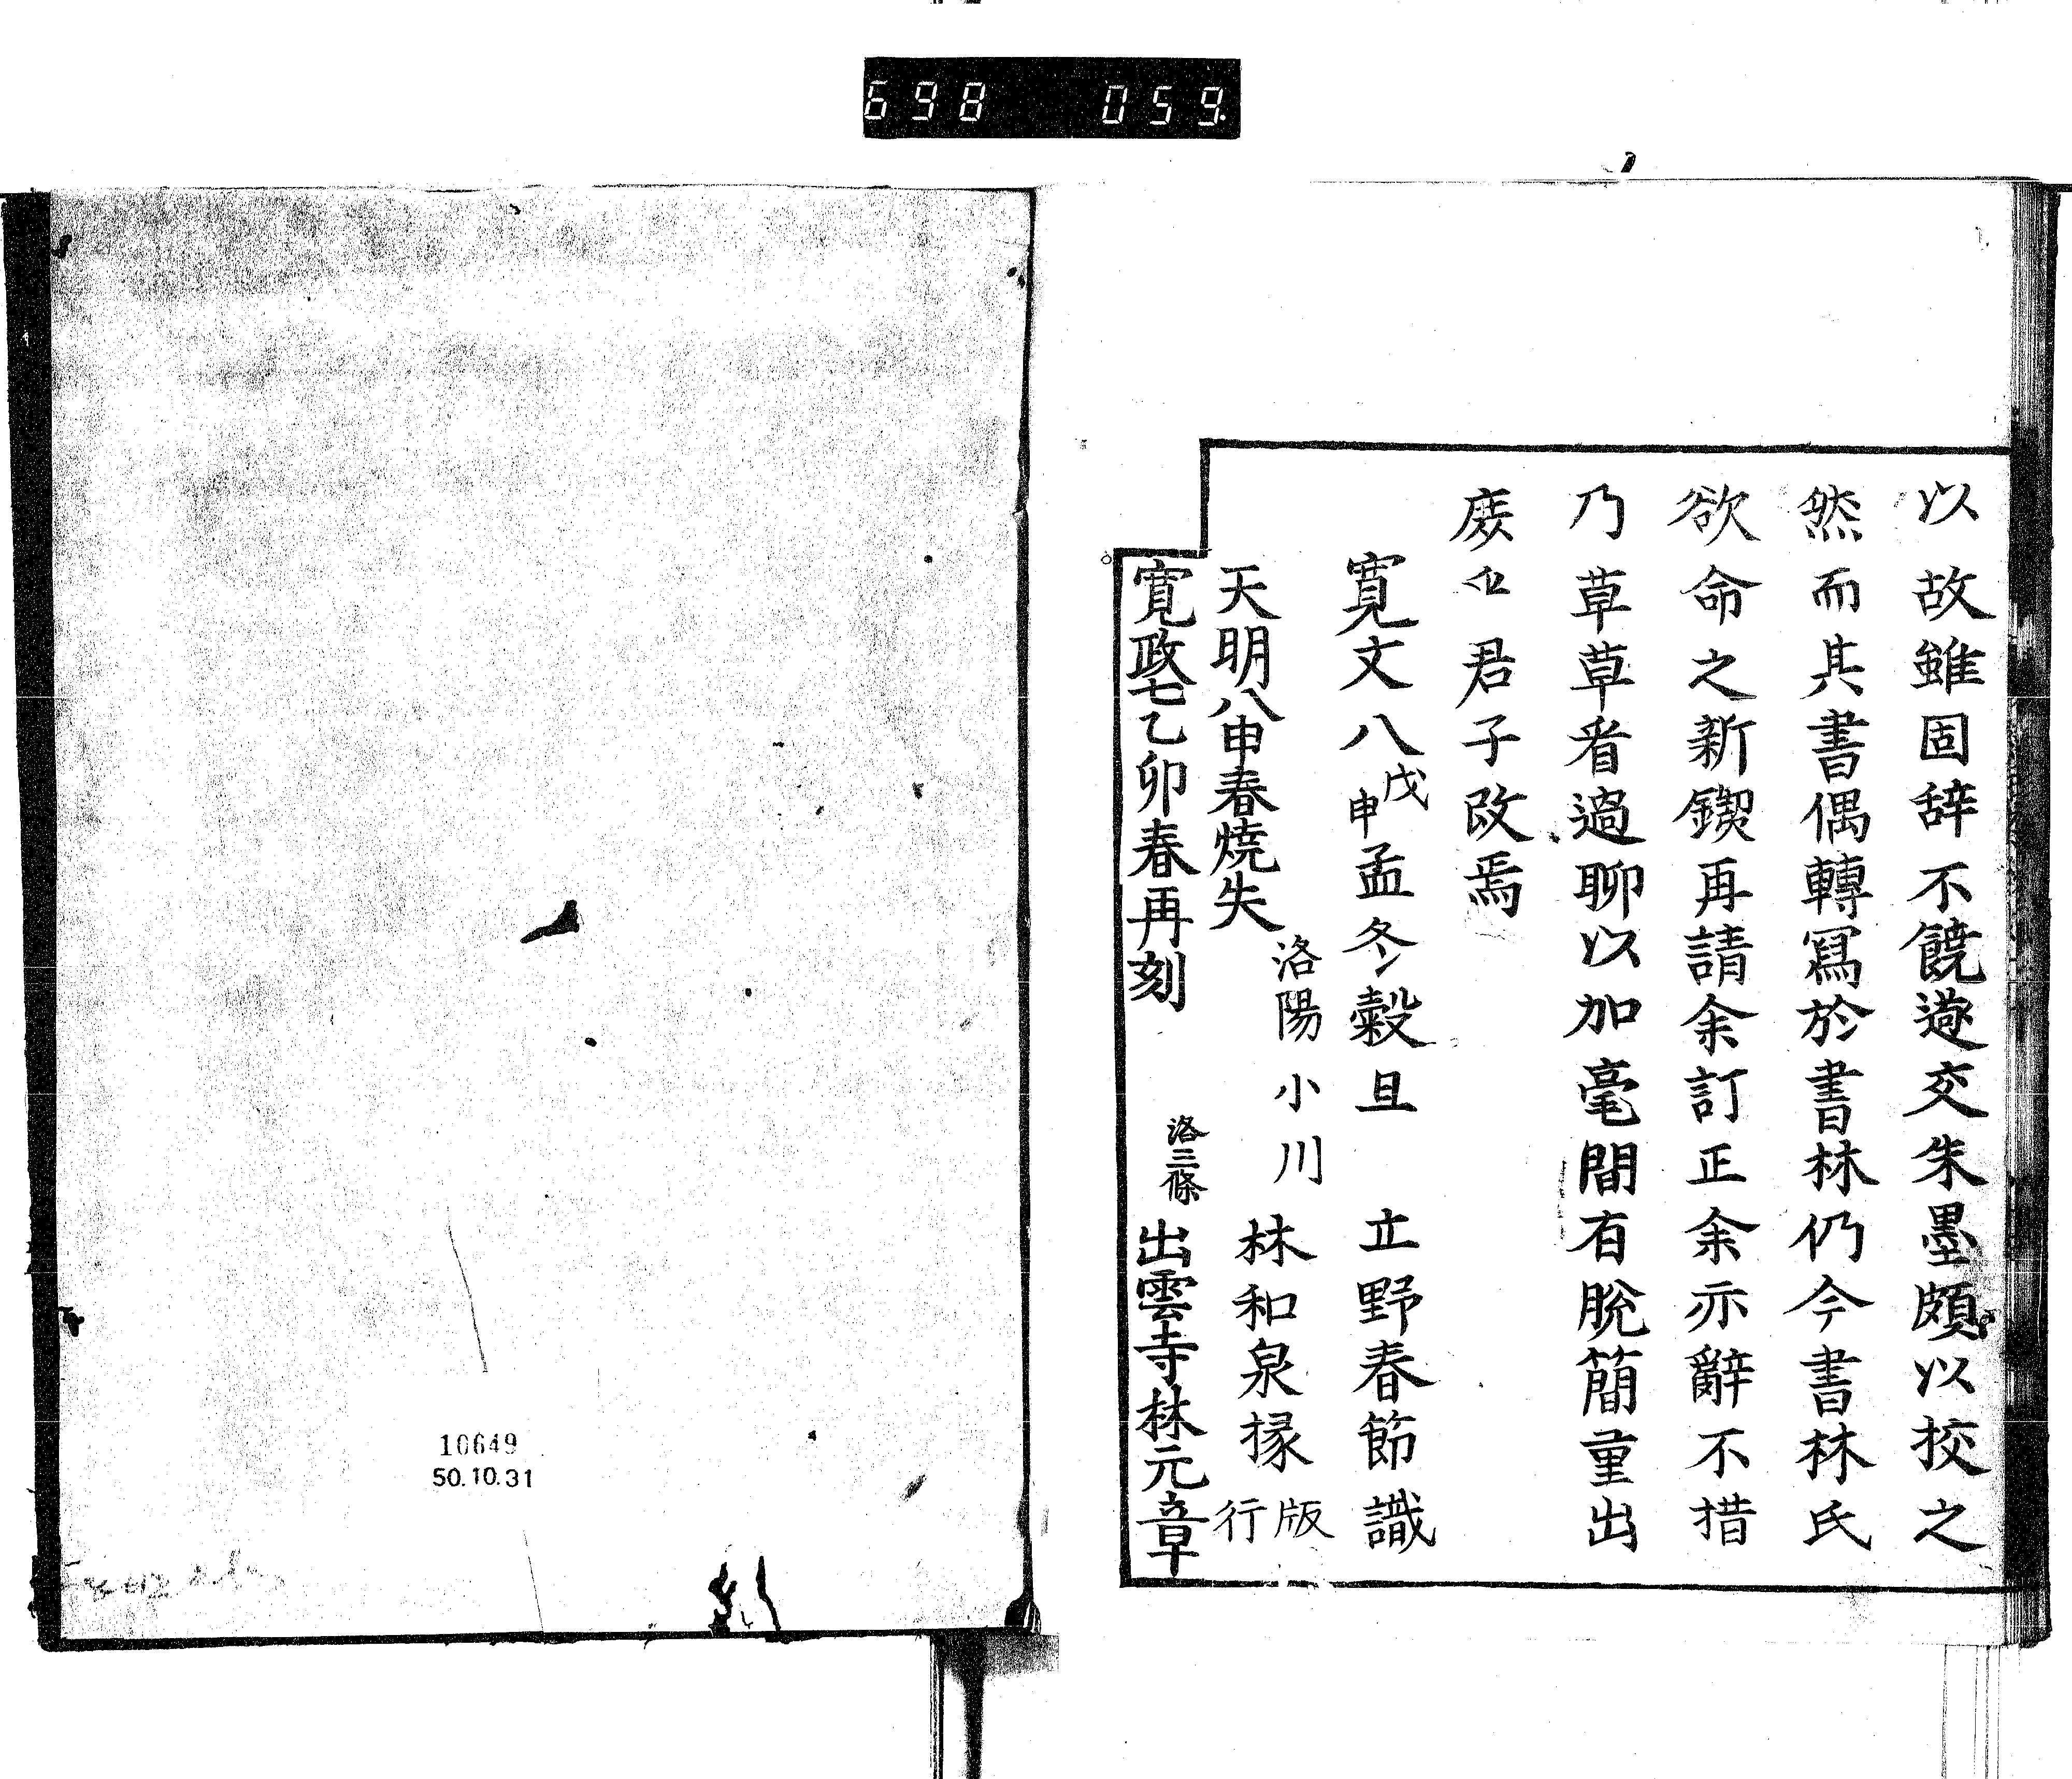 698 059.
以故雖固辞不饒遂交朱墨頗以挍之
然而其書偶轉寫於書林仍今書林氏
欲命之新鍥再請余訂正余亦辭不措
乃草草看過聊以加毫間有脫簡重出
君子改焉
寛文八戊申孟冬穀旦 立野春節識
洛陽小川 林和泉掾 版行
天明八申春焼失
寛政七乙卯春再刻 洛三條 出雲寺林元章
10649
50.10.31